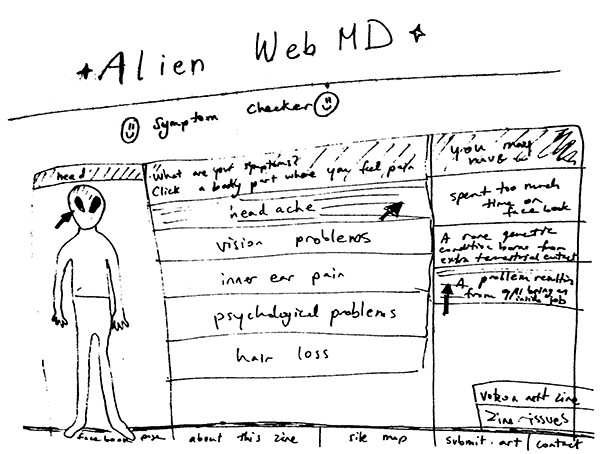 Alien Web MD
Symptom Checker
head
What are your symptoms?
Click a body part where you feel pain
head ache
vision problems
inner ear pain
psychological problems
hair loss
you may have
spent too much
time on
face book
A rare genetic
condition borne from
extra terrestrial contact
A problem resulting
from 9/11 being an
inside job
vote on next zine
zine issues
facebook page
about this zine
site map
submit art
contact